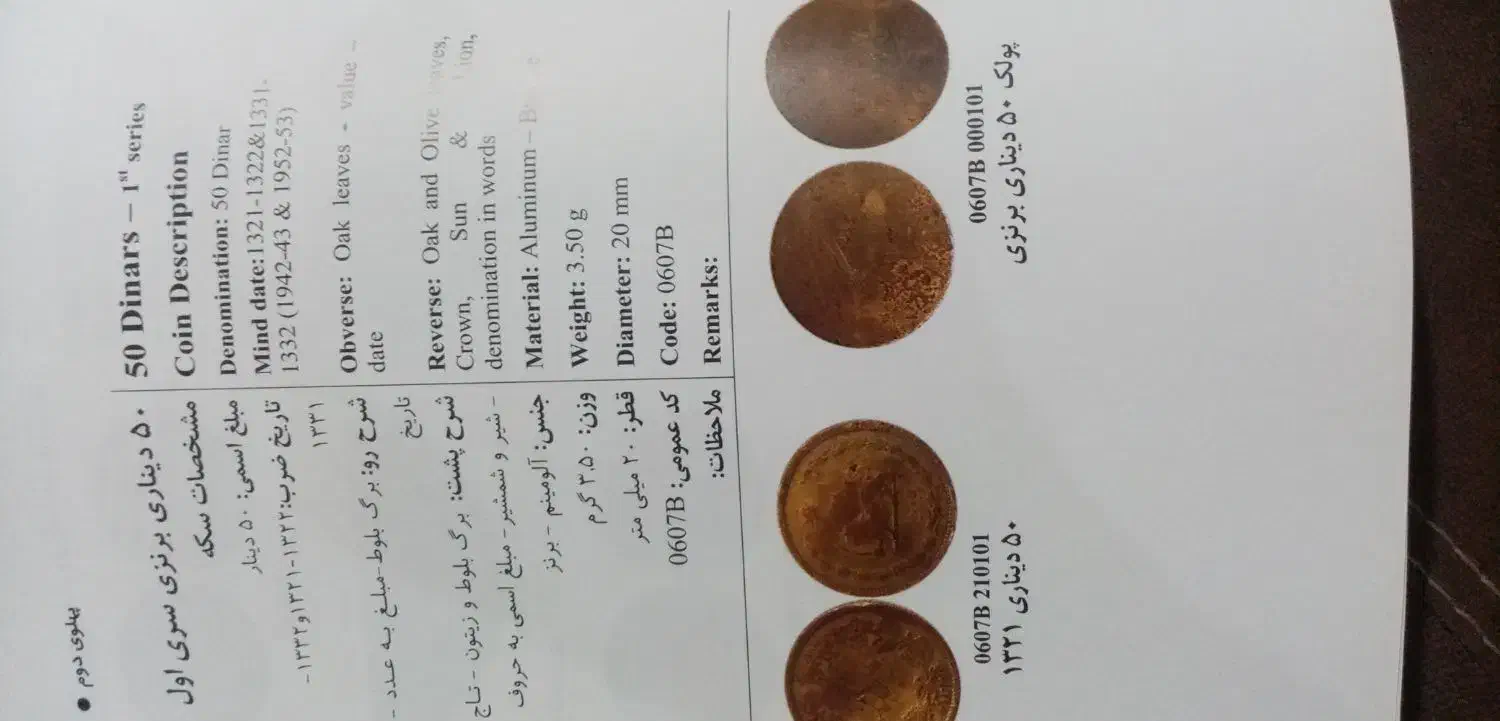 ● پهلوی دوم
۵۰ دیناری برنزی سری اول
مشخصات سکه
مبلغ اسمی: ۵۰ دینار
تاریخ ضرب:۱۳۲۲-۱۳۲۱و۱۳۳۲-
۱۳۳۱
شرح رو: برگ بلوط-مبلغ به عدد -
تاریخ
شرح پشت: برگ بلوط و زیتون - تاج
- شیر و شمشیر - مبلغ اسمی به حروف
جنس: آلومینم - برنز
وزن: ۳،۵۰ گرم
قطر: ۲۰ میلی متر
کد عمومی: 0607B
ملاحظات:
50 Dinars – 1st series
Coin Description
Denomination: 50 Dinar
Mind date:1321-1322&1331-
1332 (1942-43 & 1952-53)
Obverse: Oak leaves - value –
date
Reverse: Oak and Olive leaves,
Crown, Sun & Lion,
denomination in words
Material: Aluminum –
Weight: 3.50 g
Diameter: 20 mm
Code: 0607B
Remarks:
0607B 210101
۵۰ دیناری ۱۳۲۱
0607B 000101
پولک ۵۰ دیناری برنزی